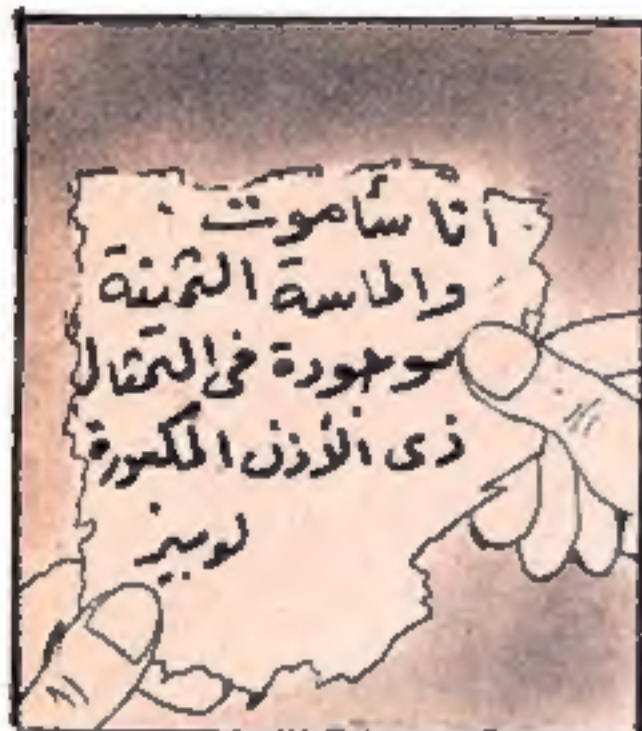 أنا سأموت
والماسة الثمينة
موجودة فى التمثال
ذى الأذن المكسورة
لوبيز